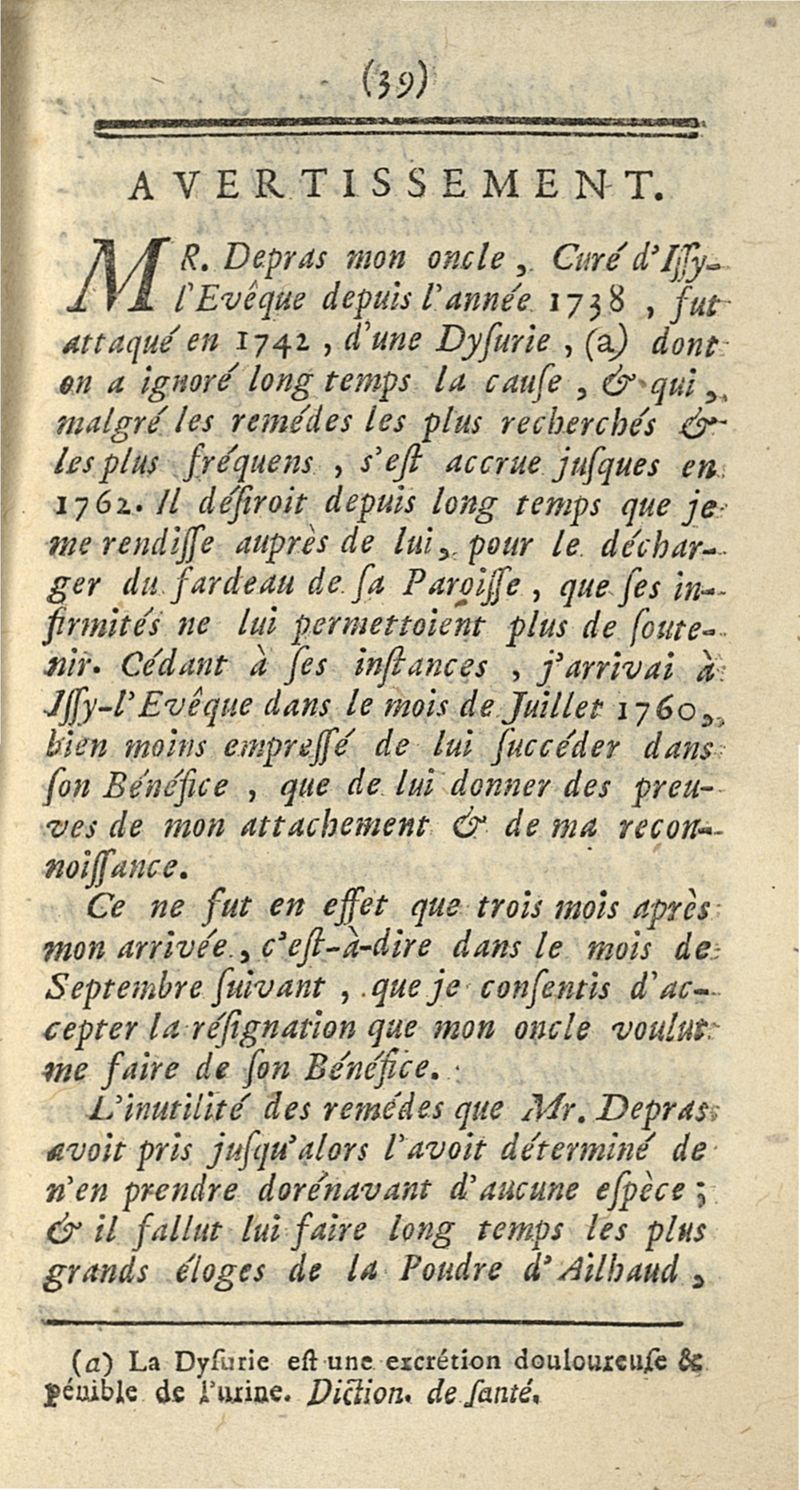 (39)
AVERTISSEMENT.
MR. Depras mon oncle, Curé d'Iſſy-
l'Evêque depuis l'année 1738, fut
attaqué en 1742, d'une Dyſurie, (a) dont
on a ignoré long temps la cauſe, & qui,
malgré les remédes les plus recherchés &
les plus fréquens, s'eſt accrue juſques en
1762. Il déſiroit depuis long temps que je
me rendiſſe auprès de lui, pour le déchar-
ger du fardeau de ſa Paroiſſe, que ſes in-
firmités ne lui permettoient plus de ſoute-
nir. Cédant à ſes inſtances, j'arrivai à
Iſſy-l'Evêque dans le mois de Juillet 1760,
bien moins empreſſé de lui ſuccéder dans
ſon Bénéfice, que de lui donner des preu-
ves de mon attachement & de ma recon-
noiſſance.
Ce ne fut en effet que trois mois après
mon arrivée, c'eſt-à-dire dans le mois de
Septembre ſuivant, que je conſentis d'ac-
cepter la réſignation que mon oncle voulut
me faire de ſon Bénéfice.
L'inutilité des remédes que Mr. Depras
avoit pris juſqu'alors l'avoit déterminé de
n'en prendre dorénavant d'aucune eſpèce;
& il fallut lui faire long temps les plus
grands éloges de la Poudre d'Ailhaud,
(a) La Dyſurie eſt une excrétion douloureuſe &
pénible de l'urine. Diction. de ſanté.